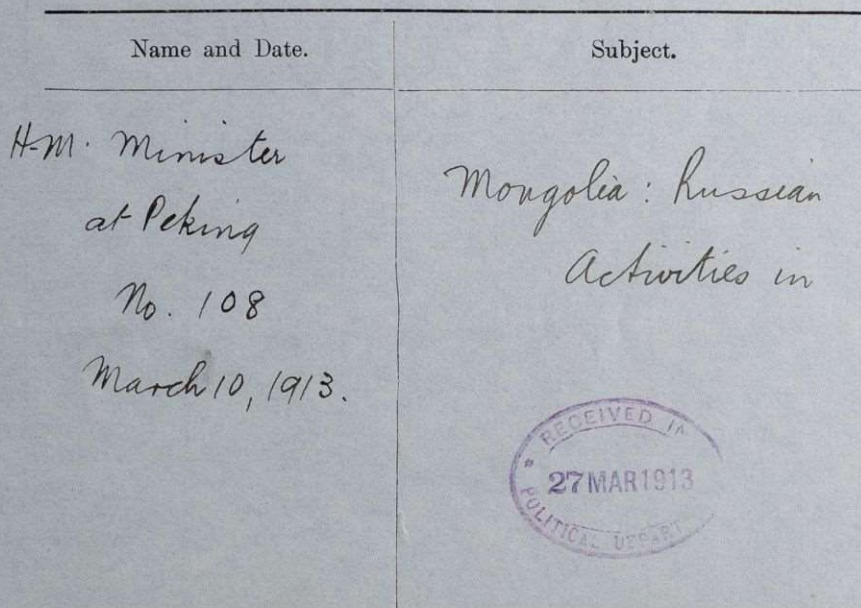 Name and Date.
Subject.
H.M. Minister
at Peking
No. 108
March 10, 1913.
Mongolia: Russian
Activities in
RECEIVED IN
* 27 MAR 1913
POLITICAL DEPART